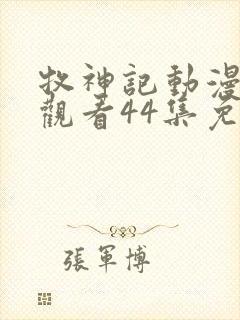 牧神記動漫
觀看44集免
張軍博